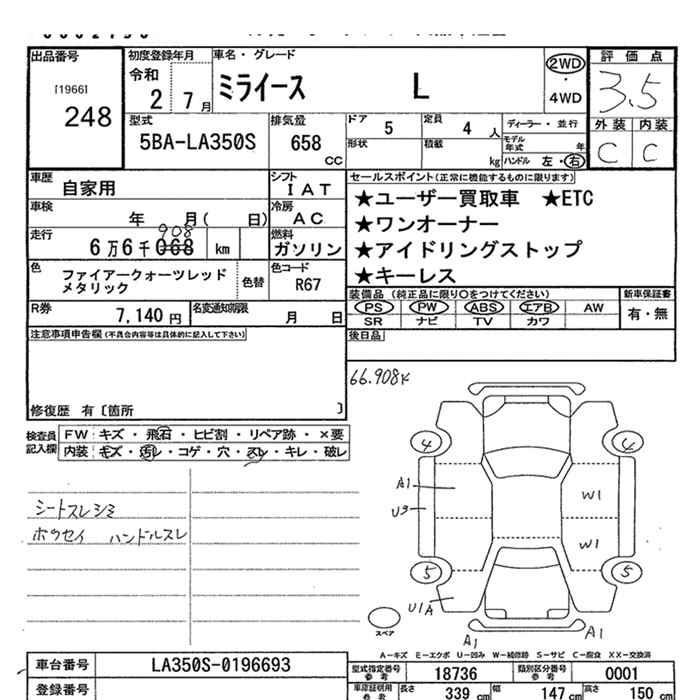 出品番号 初度登録年月 車名・グレード 評価点
[1966] 248
令和 2 7月
ミライース L
2WD・4WD
3.5
外装 内装
C C
型式 排気量 ドア 5 定員 4人 ディーラー・並行
5BA-LA350S 658 CC
形状 積載 kg モデル年式 年
ハンドル 左・右
車歴 自家用 シフト IAT
セールスポイント(正常に機能するものに限ります)
★ユーザー買取車 ★ETC
★ワンオーナー
★アイドリングストップ
★キーレス
車検 年 月( 日) 冷房 AC
908
走行 6万6千068 km 燃料 ガソリン
色 ファイアークォーツレッドメタリック 色替 色コード R67
装備品(純正品に限り〇をつけてください) 新車保証書
PS PW ABS エアB AW 有・無
SR ナビ TV カワ
R券 7,140円 名変通知期限 月 日
後日品
注意事項申告欄(不具合内容等は具体的に記入して下さい)
66.908K
修復歴 有〔箇所 〕
検査員記入欄
FW キズ・飛石・ヒビ割・リペア跡・×要
内装 キズ・汚レ・コゲ・穴・スレ・キレ・破レ
シートスレシミ
ホウセイ ハンドルスレ
4 4
A1 W1
U3
W1
5 5
U1A
スペア
A1 A1
A-キズ E-エクボ U-凹み W-補修跡 S-サビ C-腐食 XX-交換済
車台番号 LA350S-0196693
型式指定番号 参考 18736 類別区分番号 参考 0001
登録番号
車庫証明用 参考 長さ 339 cm 幅 147 cm 高さ 150 cm